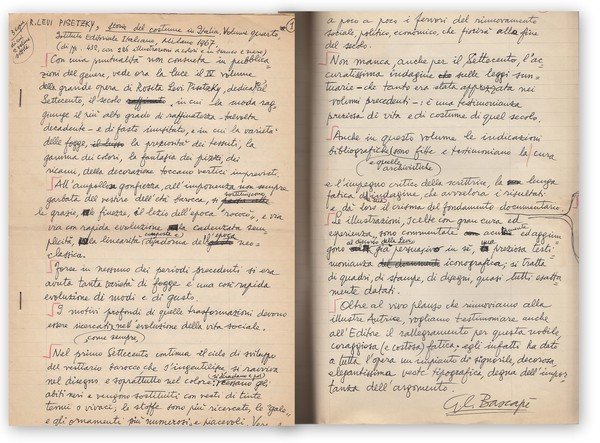 R. LEVI PISETZKY, Storia del costume in Italia, Volume quarto
Istituto Editoriale Italiano, Milano 1967.
(di pp. 492, con 286 illustrazioni a colori e in bianco e nero)
1
Con una puntualità non consueta in pubblica
zioni del genere, vede ora la luce il IV volume
della grande opera di Rosita Levi Pisetzky, dedicata al
Settecento, il secolo in cui la moda rag
giunge il più alto grado di raffinatezza - talvolta
decadente - e di fasto inusitato, e in cui la varietà
delle fogge, la preziosità dei tessuti, la
gamma dei colori, la fantasia dei pizzi, dei
ricami, della decorazione toccano vertici imprevisti.
All'ampollosa gonfiezza, all'imponenza non sempre
garbata del vestire dell'età barocca, si sostituiscono
le grazie, le finezze, il lezio dell'epoca "rococò", e via
via con rapida evoluzione la cadenzata sem
plicità, la linearità composta dell'epoca neo-
classica.
Forse in nessuno dei periodi precedenti si era
avuta tanta varietà di fogge e una così rapida
evoluzione di modi e di gusto.
I motivi profondi di quelle trasformazioni devono
essere ricercati, come sempre, nell'evoluzione della vita sociale.
Nel primo Settecento continua il ciclo di sviluppo
del vestiario barocco che s'ingentilisce, si ravviva
nel disegno e soprattutto nel colore: gli
abiti neri e vengono sostituiti con vesti di tinte
tenui o vivaci, le stoffe sono più ricercate, le gale
e gli ornamenti più numerosi e piacevoli.
a poco a poco i fervori del rinnovamento
sociale, politico, economico, che fiorirà alla fine
del secolo.
Non manca, anche per il Settecento, l'ac
curatissima indagine sulle leggi sun
tuarie - che tanto era stata apprezzata nei
volumi precedenti - : è una testimonianza
preziosa di vita e di costume di quel secolo.
Anche in questo volume le indicazioni
bibliografiche e quelle archivistiche sono fitte e testimoniano la cura
e l'impegno critico della scrittrice, la lunga
fatica d'indagine, che avvalora i risultati
e dà loro il crisma del fondamento documentario.
Le illustrazioni, scelte con gran cura ed
esperienza, sono commentate ed aggiun
gono al discorso della Levi, già persuasivo in sé, una preziosa testi
monianza iconografica; si tratta
di quadri, di stampe, di disegni, quasi tutti esatta
mente datati.
Oltre al vivo plauso che rinnoviamo alla
illustre Autrice, vogliamo testimoniare anche
all'Editore il rallegramento per questa nobile
coraggiosa (e costosa) fatica: egli infatti ha dato
a tutta l'opera un impianto di signorile, decorosa,
elegantissima veste tipografica, degna dell'impor
tanza dell'argomento.
G. C. Bascapè